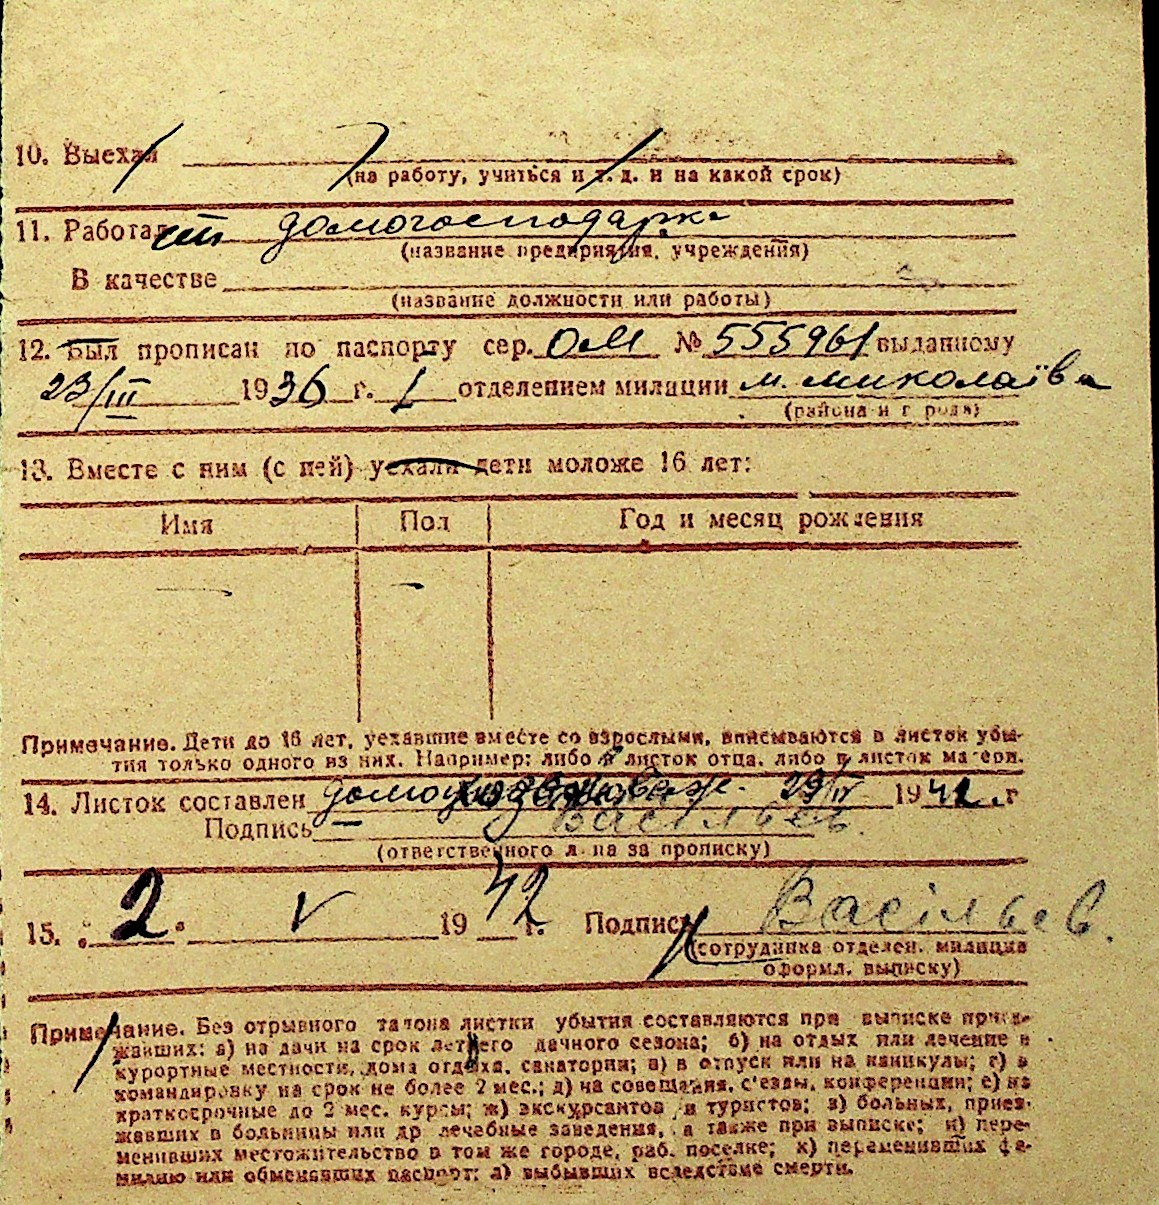 10. Выехал
(на работу, учиться и т. д. и на какой срок)
11. Работает домогосподарка
(название предприятия, учреждения)
В качестве
(название должности или работы)
12. Был прописан по паспорту сер. ОМ № 555961 выданному
23/III 1936 г. 1 отделением милиции м. Миколаїва
(района и города)
13. Вместе с ним (с ней) уехали дети моложе 16 лет:
Имя Пол Год и месяц рождения
— —
Примечание. Дети до 16 лет, уехавшие вместе со взрослыми, вписываются в листок убы-
тия только одного из них. Например: либо в листок отца, либо в листок матери.
14. Листок составлен 29/IV 1942 г
Подпись Васільєв
(ответственного лица за прописку)
15. „2“ V 1942 г. Подпись Васільєв.
(сотрудника отделен. милиции
оформл. выписку)
Примечание. Без отрывного талона листки убытия составляются при выписке приез-
жавших: а) на дачи на срок летнего дачного сезона; б) на отдых или лечение в
курортные местности, дома отдыха, санатории; в) в отпуск или на каникулы; г) в
командировку на срок не более 2 мес.; д) на совещания, с'езды, конференции; е) на
краткосрочные до 2 мес. курсы; ж) экскурсантов и туристов; з) больных, приез-
жавших в больницы или др лечебные заведения, а также при выписке; и) пере-
менивших местожительство в том же городе, раб. поселке; к) переменивших фа-
милию или обменявших паспорт; л) выбывших вследствие смерти.